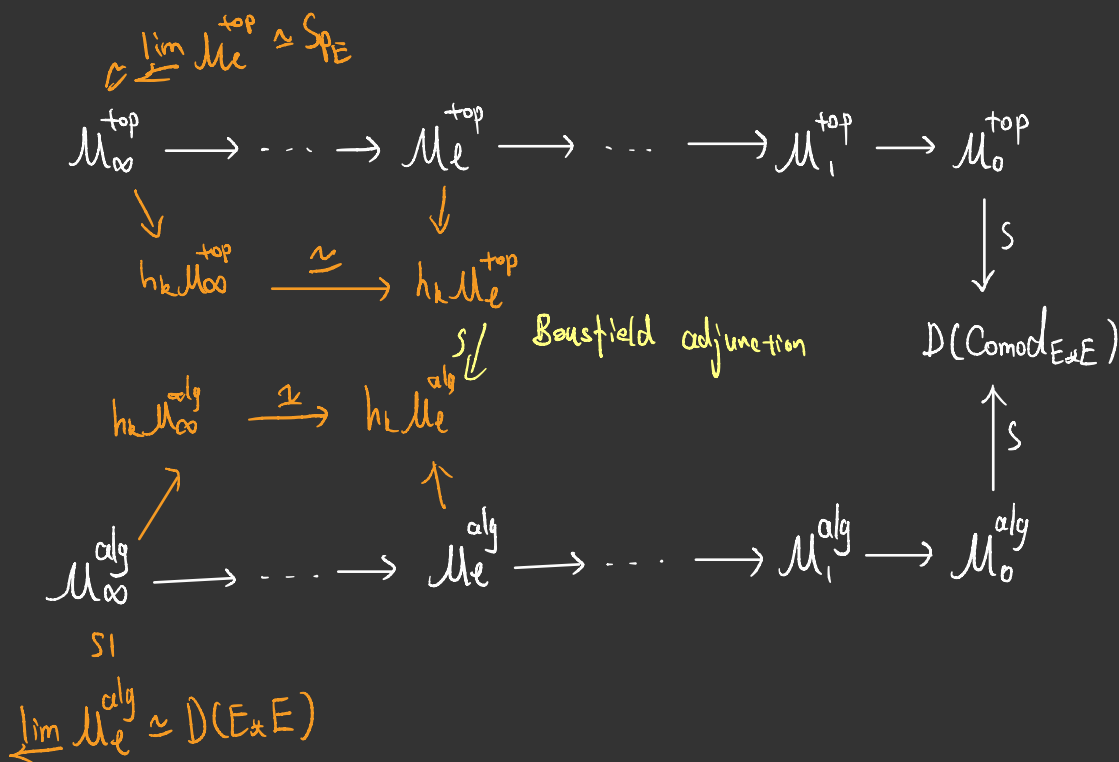 lim M_ℓ^top ≃ Sp_E
M_∞^top → ... → M_ℓ^top → ... → M_1^top → M_0^top
h_k M_∞^top ≃→ h_k M_ℓ^top
S
S Bousfield adjunction D(Comod_{E_*E})
h_k M_∞^alg ≃→ h_k M_ℓ^alg
S
M_∞^alg → ... → M_ℓ^alg → ... → M_1^alg → M_0^alg
S|
lim M_ℓ^alg ≃ D(E_*E)